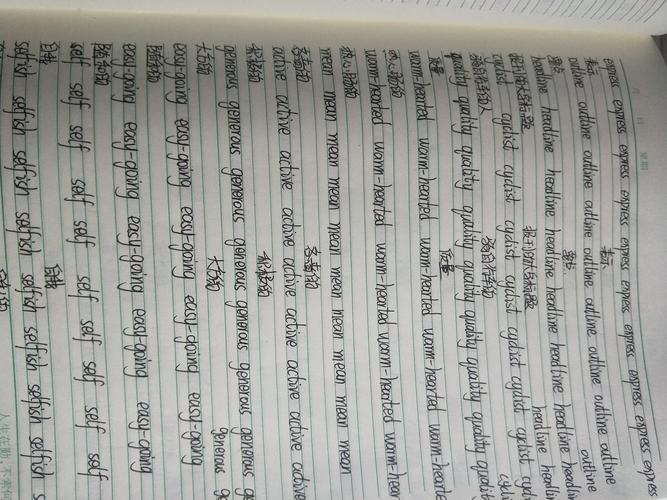 express express express express express express express express express
表示 表示
outline outline outline outline outline outline outline outline outline
要点 要点
headline headline headline headline headline headline headline headline
报刊的大字标题 报刊的大字标题
cyclist cyclist cyclist cyclist cyclist cyclist cyclist cyclist
骑自行车的人
quality quality quality quality quality quality quality quality quality
质量 质量
warm-hearted warm-hearted warm-hearted warm-hearted
warm-hearted warm-hearted warm-hearted warm-hearted
热心肠的
mean mean mean mean mean mean mean mean mean
吝啬的 吝啬的
active active active active active active active active active
积极的 积极的
generous generous generous generous generous generous generous
大方的 大方的
easy-going easy-going easy-going easy-going easy-going
easy-going easy-going easy-going easy-going easy-going
随和的
self self self self self self self self self
自我 自我
selfish selfish selfish selfish selfish selfish selfish selfish